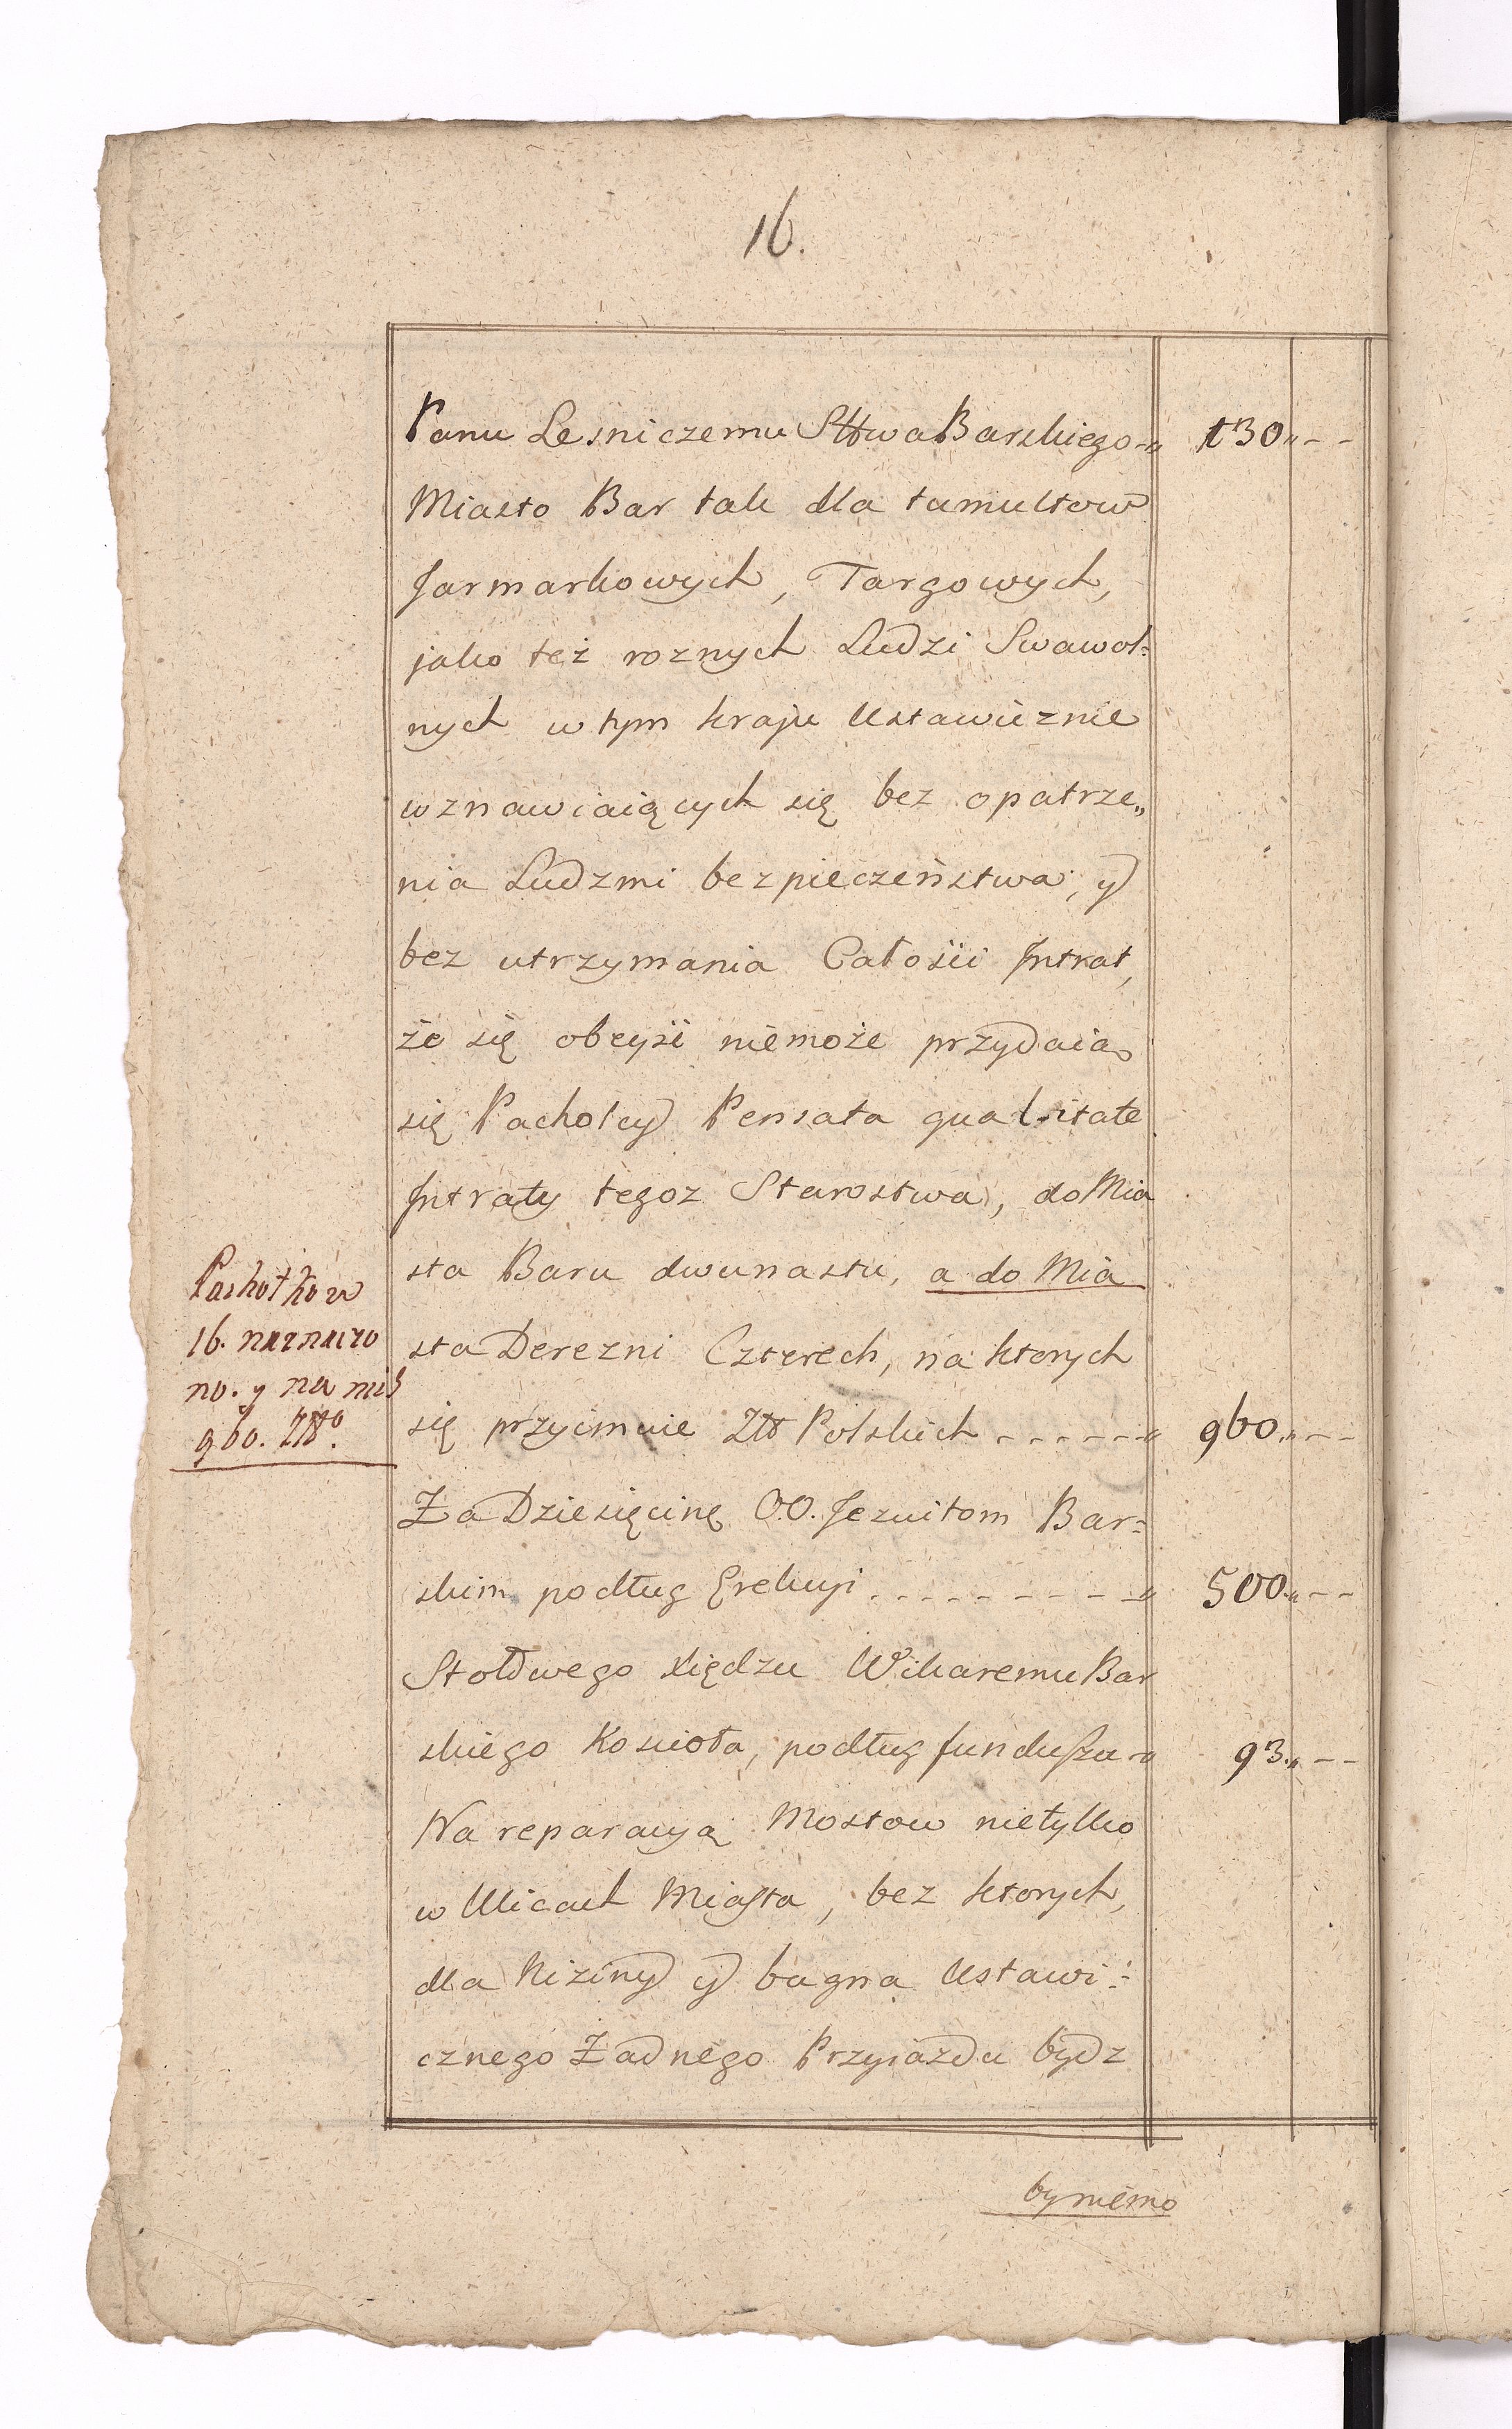 16.
Panu Lesniczemu Sttwa Barskiego-„ 130„--
Miasto Bar tak dla tumultow
Jarmarkowych, Targowych,
jako też roznych Ludzi Swawol:
nych w tym kraju Ustawicznie
wznawiaiących się bez opatrze„
nia Ludzmi bezpieczeństwa, y
bez utrzymania Całości Jntrat,
że się obeyść niemoże przydaią
się Pachołcy Pensata qualitate
Jntraty tegoz Starostwa, do Mia
sta Baru dwunastu, a do Mia
sta Derezni Czterech, na ktorych
się przyimuie Ztt Polskich ------„ 960„--
Za Dziesięcinę O.O. Jezuitom Bar:
skim podług Erekcyi ---------„ 500„--
Stołowego Xiędzu Wikaremu Bar
skiego Koscioła, podług funduszu-„ 93„--
Na reparacyą Mostow nietylko
w Ulicach Miasta, bez ktorych,
dla Niziny y bagna Ustawi:
cznego Żadnego Przyiazdu bydz
by niemo
Pachołkow
16. naznaczo
no. y na nich
960. Ztt.